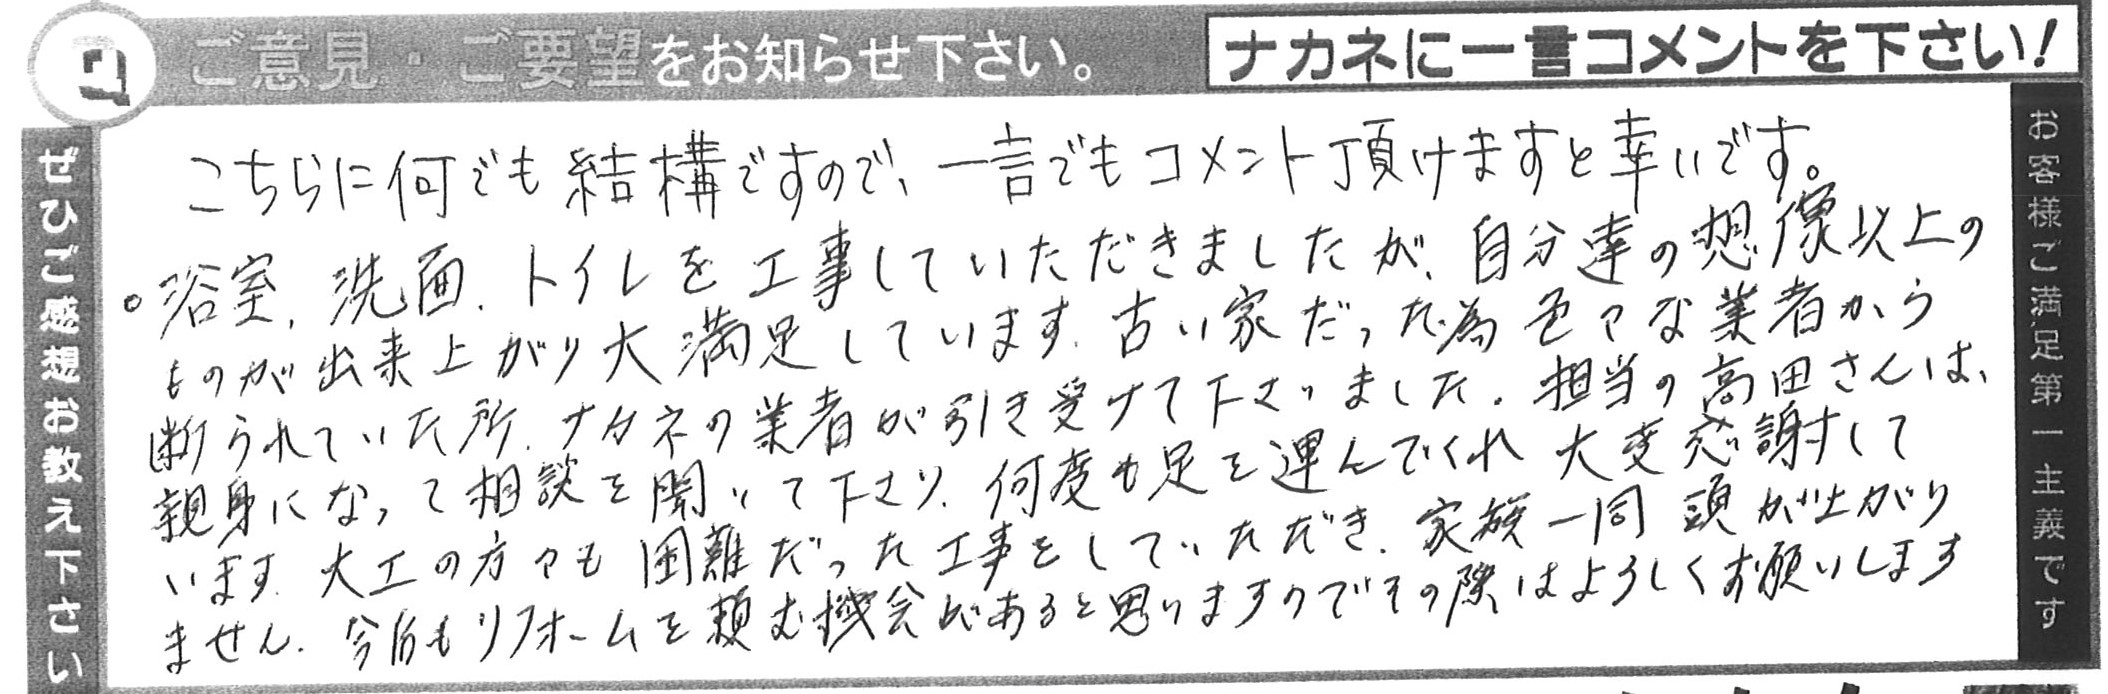 ご意見・ご要望をお知らせ下さい。
ナカネに一言コメントを下さい!
ぜひご感想お教え下さい
お客様ご満足第一主義です
こちらに何でも結構ですので、一言でもコメント頂けますと幸いです。
。浴室、洗面、トイレを工事していただきましたが、自分達の想像以上の
ものが出来上がり大満足しています。古い家だった為色々な業者から
断られていた所、ナカネの業者が引き受けて下さいました。担当の高田さんは、
親身になって相談を聞いて下さり、何度も足を運んでくれ大変感謝して
います。大工の方々も困難だった工事をしていただき、家族一同頭が上がり
ません。今后もリフォームを頼む機会があると思いますのでその際はよろしくお願いします